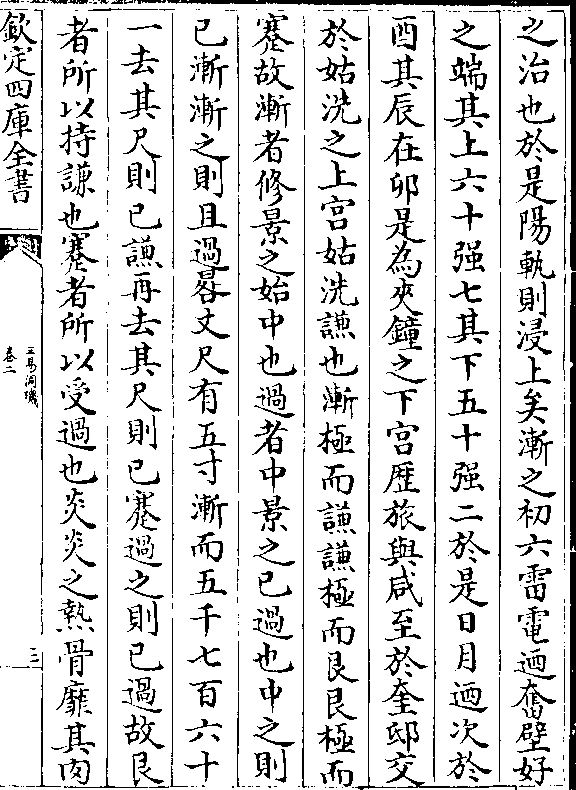 之治也於是陽軌則浸上矣漸之初六雷電迺奮壁好
之端其上六十强七其下五十强二於是日月迺次於
酉其辰在卯是為夾鐘之下宫歴旅與咸至於奎邸交
於姑洗之上宫姑洗謙也漸極而謙謙極而艮艮極而
蹇故漸者修景之始中也過者中景之已過也中之則
已漸漸之則且過晷丈尺有五寸漸而五千七百六十
一去其尺則已謙再去其尺則已蹇過之則已過故艮
者所以持謙也蹇者所以受過也炎炎之熱骨靡其肉
欽定四庫全書
三易洞璣
卷二
三